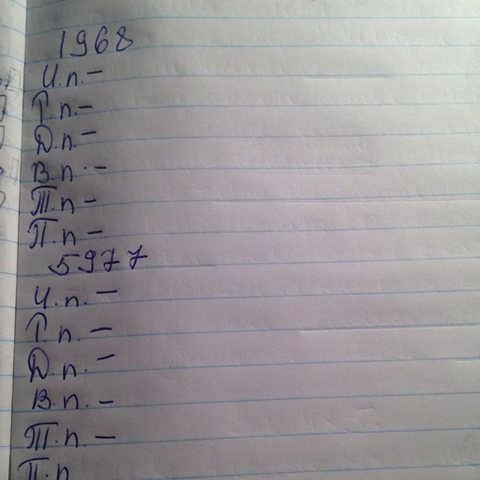 1968
И.п.-
Р.п.-
Д.п.-
В.п.-
Т.п-
П.п-
5977
И.п.-
Р.п.-
Д.п.-
В.п.-
Т.п.-
П.п